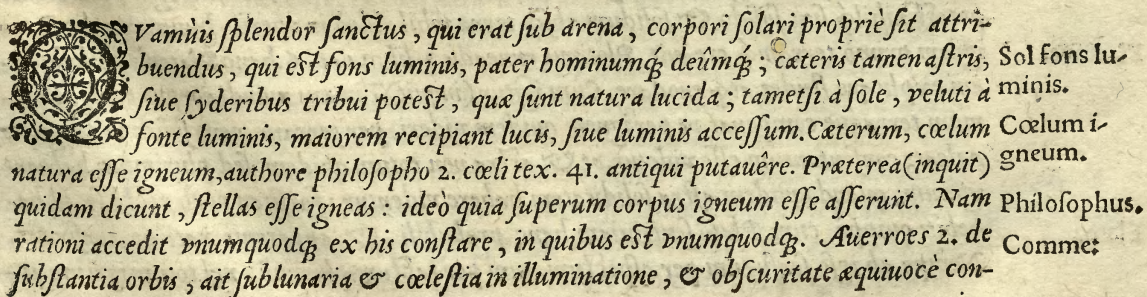 QVamùis ſplendor ſanctus, qui erat ſub arena, corpori ſolari propriè ſit attri-
buendus, qui eſt fons luminis, pater hominumq́; deûmq́; ; cæteris tamen aſtris,
ſiue ſyderibus tribui poteſt, quæ ſunt natura lucida; tametſi à ſole, veluti à
fonte luminis, maiorem recipiant lucis, ſiue luminis acceſſum. Cæterum, cœlum
natura eſſe igneum, authore philoſopho 2. cœli tex. 41. antiqui putauêre. Præterea (inquit)
quidam dicunt, ſtellas eſſe igneas: ideò quia ſuperum corpus igneum eſſe aſſerunt. Nam
rationi accedit vnumquodq; ex his conſtare, in quibus eſt vnumquodq;. Auerroes 2. de
ſubſtantia orbis, ait ſublunaria & cœleſtia in illuminatione, & obſcuritate æquiuocè con-
Sol fons lu-
minis.
Cœlum i-
gneum.
Philoſophus.
Comme: